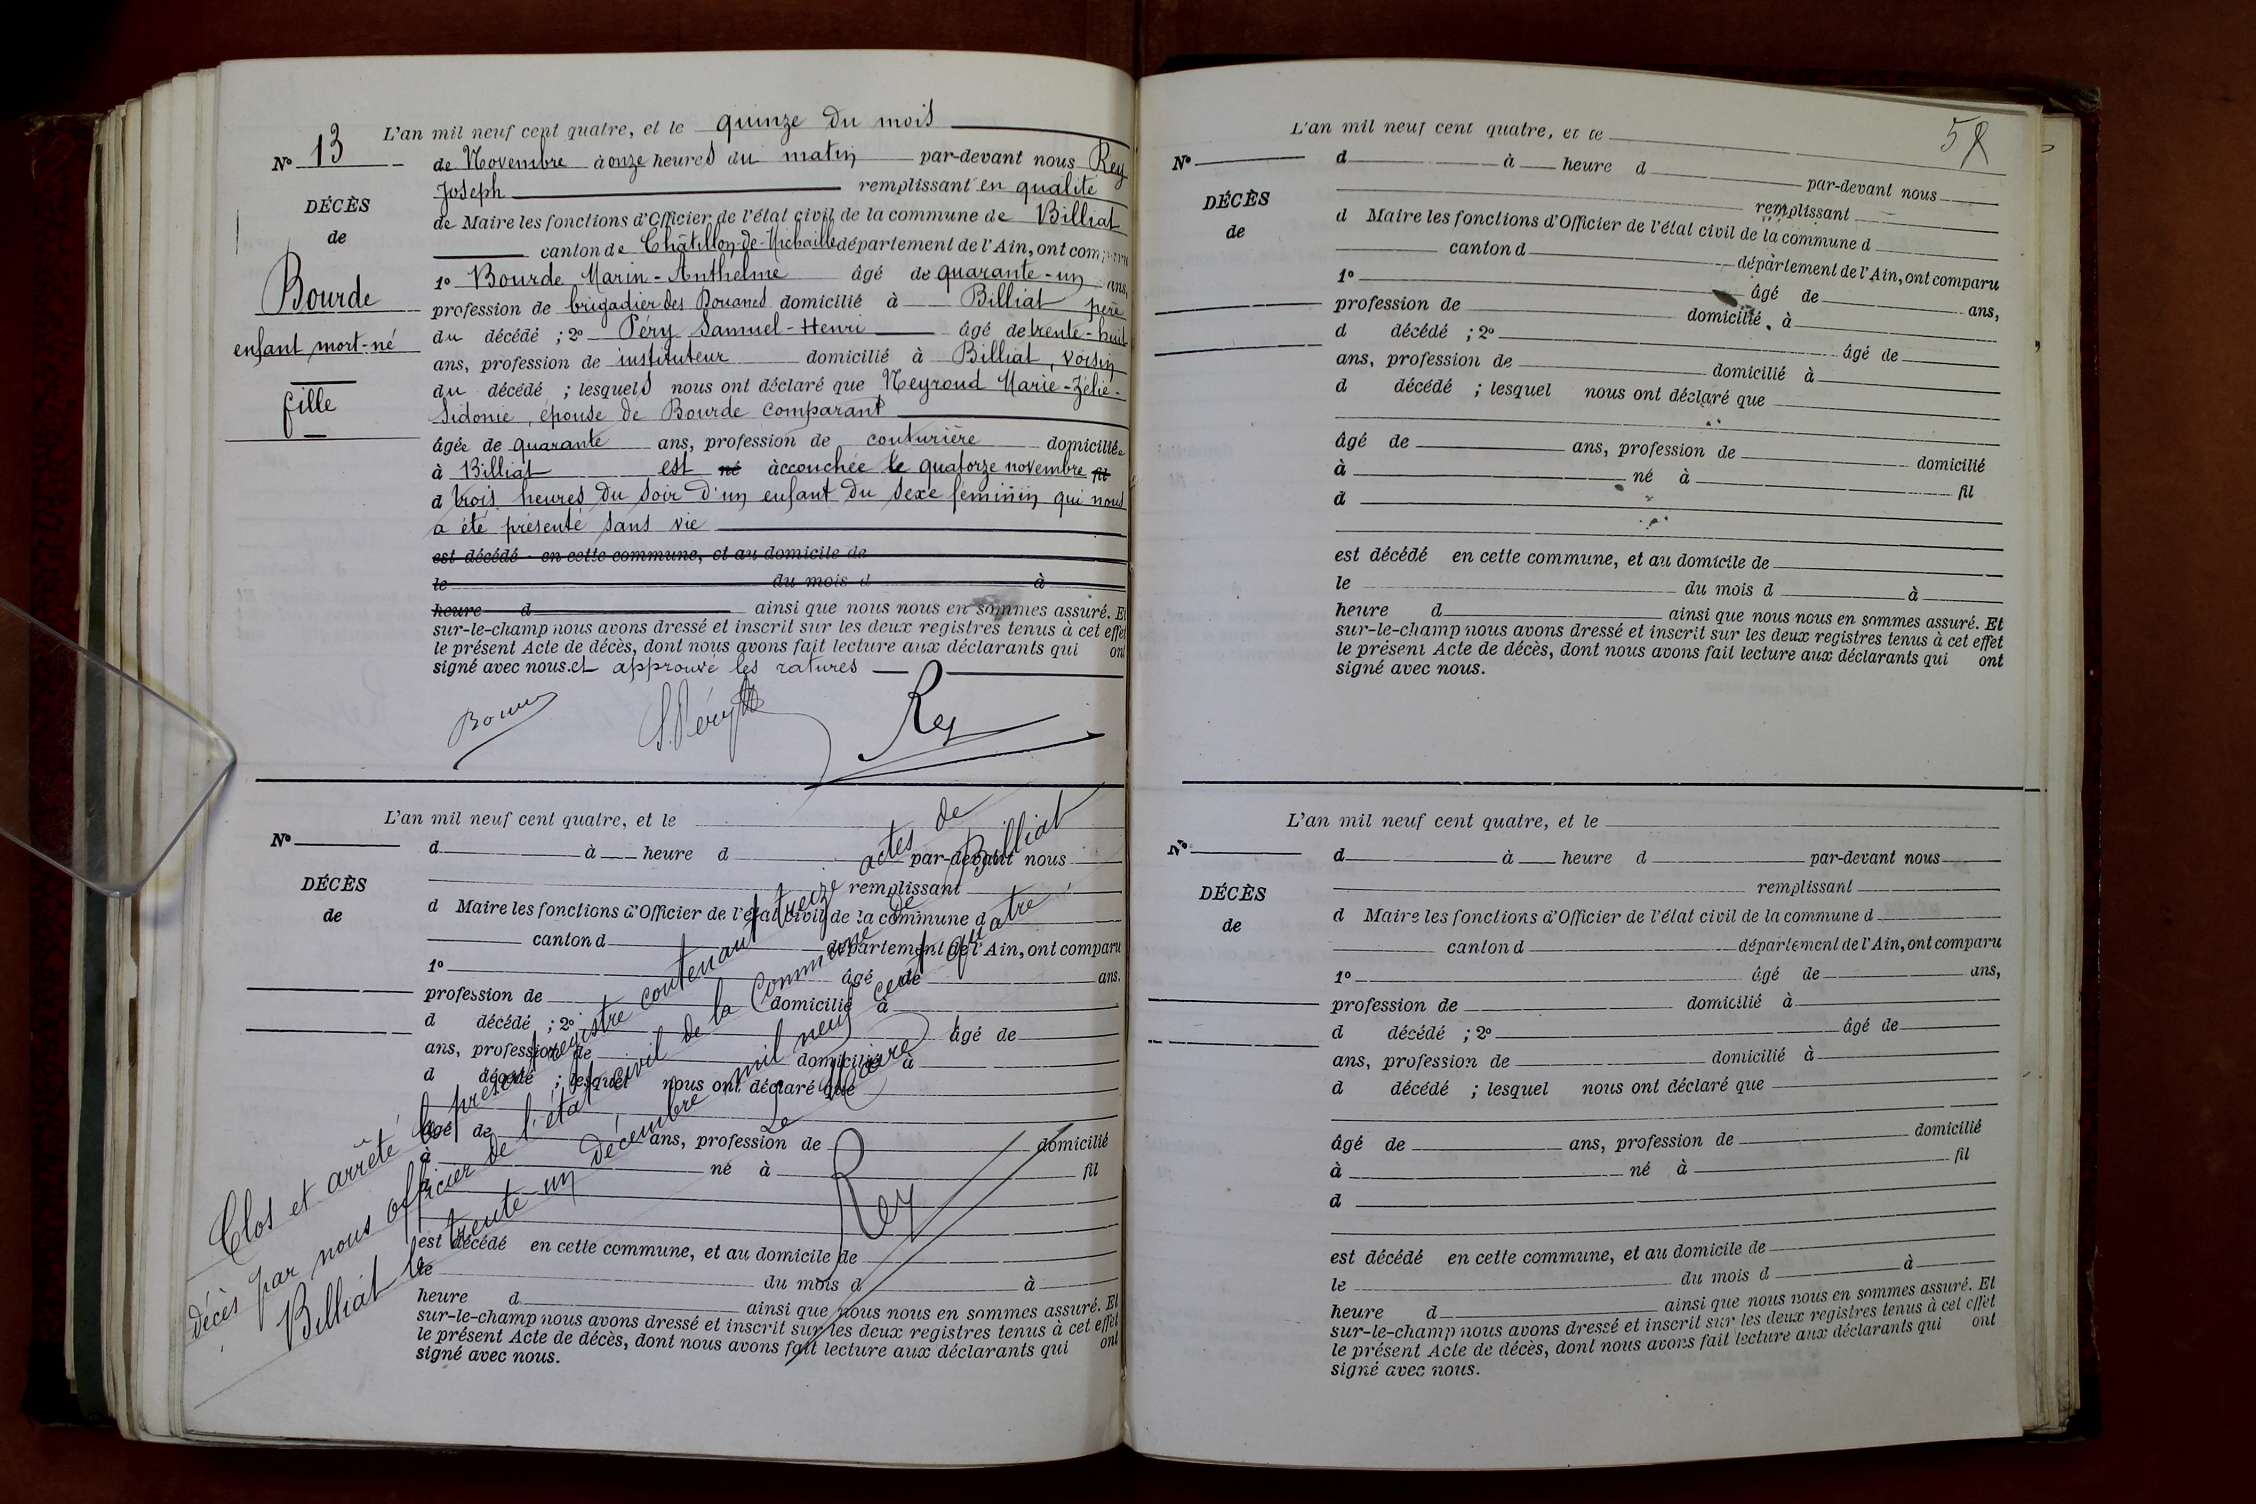 L'an mil neuf cent quatre, et le quinze du mois
N° 13
de Novembre à onze heures du matin par-devant nous Rey
Joseph remplissant en qualité
DÉCÈS
de Maire les fonctions d'Officier de l'état civil de la commune de Billiat
de
canton de Châtillon-de-Michaille département de l'Ain, ont comparu
1° Bourde Marin-Anthelme âgé de quarante-un ans,
Bourde
profession de brigadier des Douanes domicilié à Billiat père
du décédé ; 2° Péry Samuel-Henri âgé de trente-huit
enfant mort-né
ans, profession de instituteur domicilié à Billiat, voisin
du décédé ; lesquels nous ont déclaré que Neyroud Marie-Zélie-
fille
Sidonie, épouse de Bourde comparant
âgée de quarante ans, profession de couturière domiciliée
à Billiat est né accouchée le quatorze novembre fil
d trois heures du soir d'un enfant du sexe féminin qui nous
a été présenté sans vie
est décédé en cette commune, et au domicile de
le du mois d à
heure d ainsi que nous nous en sommes assuré. Et
sur-le-champ nous avons dressé et inscrit sur les deux registres tenus à cet effet
le présent Acte de décès, dont nous avons fait lecture aux déclarants qui ont
signé avec nous. et approuvé les ratures
S. Péry
Rey
L'an mil neuf cent quatre, et le
N°
d à heure d par-devant nous
remplissant
DÉCÈS
d Maire les fonctions d'Officier de l'état civil de la commune d
de
canton d département de l'Ain, ont comparu
1° âgé de ans.
profession de domicilié à
d décédé ; 2° âgé de
ans, profession de domicilié à
d décédé ; lesquel nous ont déclaré que
âgé de ans, profession de domicilié
à né à fil
d
est décédé en cette commune, et au domicile de
le du mois d à
heure d ainsi que nous nous en sommes assuré. Et
sur-le-champ nous avons dressé et inscrit sur les deux registres tenus à cet effet
le présent Acte de décès, dont nous avons fait lecture aux déclarants qui ont
signé avec nous.
Clos et arrêté le présent registre contenant treize actes de
décès par nous officier de l'état civil de la Commune de Billiat
Billiat le trente-un décembre mil neuf cent quatre
Le Maire
Rey
58
L'an mil neuf cent quatre, et le
N°
d à heure d par-devant nous
remplissant
DÉCÈS
d Maire les fonctions d'Officier de l'état civil de la commune d
de
canton d département de l'Ain, ont comparu
1° âgé de ans,
profession de domicilié à
d décédé ; 2° âgé de
ans, profession de domicilié à
d décédé ; lesquel nous ont déclaré que
âgé de ans, profession de domicilié
à né à fil
d
est décédé en cette commune, et au domicile de
le du mois d à
heure d ainsi que nous nous en sommes assuré. Et
sur-le-champ nous avons dressé et inscrit sur les deux registres tenus à cet effet
le présent Acte de décès, dont nous avons fait lecture aux déclarants qui ont
signé avec nous.
L'an mil neuf cent quatre, et le
N°
d à heure d par-devant nous
remplissant
DÉCÈS
d Maire les fonctions d'Officier de l'état civil de la commune d
de
canton d département de l'Ain, ont comparu
1° âgé de ans,
profession de domicilié à
d décédé ; 2° âgé de
ans, profession de domicilié à
d décédé ; lesquel nous ont déclaré que
âgé de ans, profession de domicilié
à né à fil
d
est décédé en cette commune, et au domicile de
le du mois d à
heure d ainsi que nous nous en sommes assuré. Et
sur-le-champ nous avons dressé et inscrit sur les deux registres tenus à cet effet
le présent Acte de décès, dont nous avons fait lecture aux déclarants qui ont
signé avec nous.